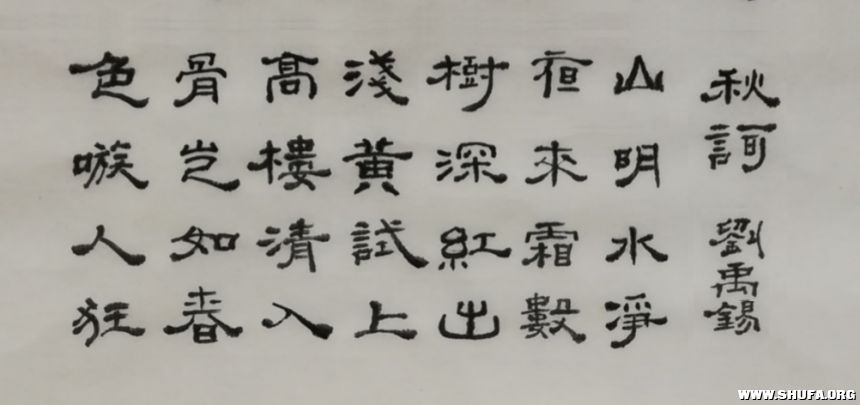 秋訶 劉禹錫
山明水淨
夜來霜數
樹深紅出
淺黃試上
高樓清入
骨豈如春
色嗾人狂
WWW.SHUFA.ORG